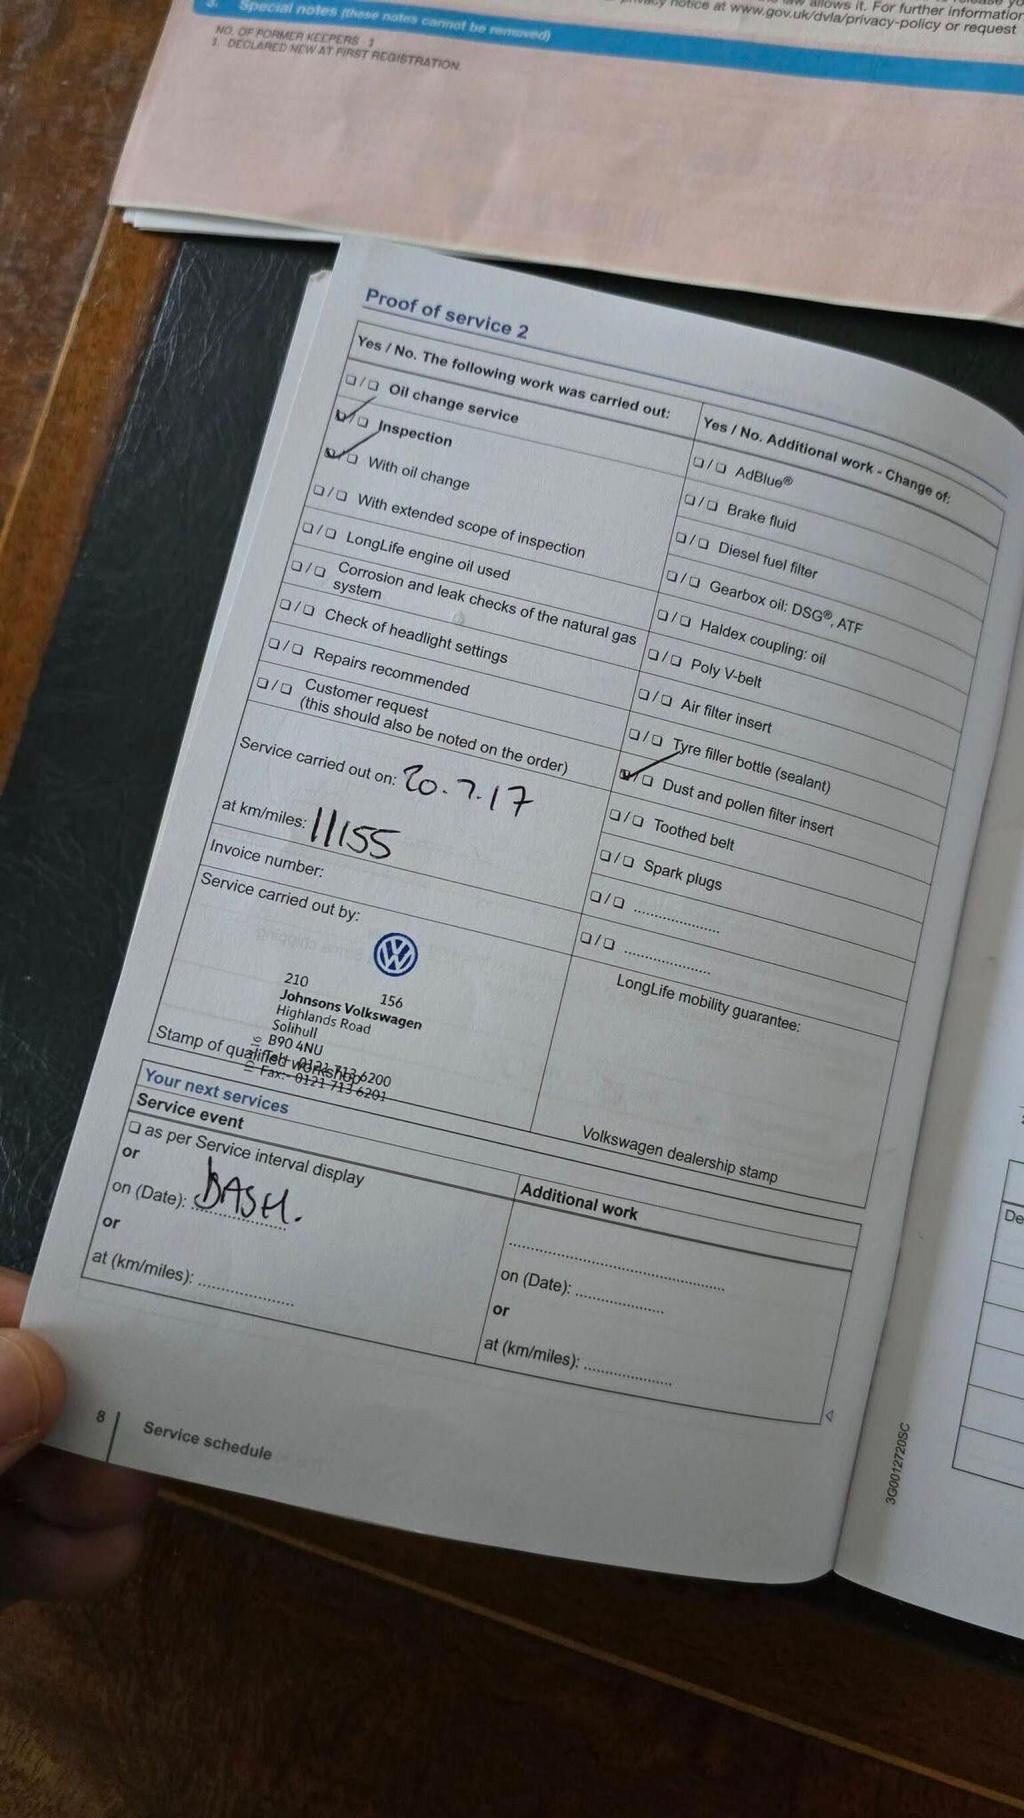 3. Special notes (these notes cannot be removed)
NO. OF FORMER KEEPERS - 3
1. DECLARED NEW AT FIRST REGISTRATION.
law allows it. For further information
privacy notice at www.gov.uk/dvla/privacy-policy or request
Proof of service 2
Yes / No. The following work was carried out:
❑/❑ Oil change service
❑/❑ Inspection
❑/❑ With oil change
❑/❑ With extended scope of inspection
❑/❑ LongLife engine oil used
❑/❑ Corrosion and leak checks of the natural gas
system
❑/❑ Check of headlight settings
❑/❑ Repairs recommended
❑/❑ Customer request
(this should also be noted on the order)
Service carried out on: 20.7.17
at km/miles: 11155
Invoice number:
Service carried out by:
210 156
Johnsons Volkswagen
Highlands Road
Solihull
B90 4NU
Tel:- 0121 713 6200
Fax:- 0121 713 6201
Stamp of qualified workshop
Yes / No. Additional work - Change of:
❑/❑ AdBlue®
❑/❑ Brake fluid
❑/❑ Diesel fuel filter
❑/❑ Gearbox oil: DSG®, ATF
❑/❑ Haldex coupling: oil
❑/❑ Poly V-belt
❑/❑ Air filter insert
❑/❑ Tyre filler bottle (sealant)
❑/❑ Dust and pollen filter insert
❑/❑ Toothed belt
❑/❑ Spark plugs
❑/❑ ....................
❑/❑ ....................
LongLife mobility guarantee:
Volkswagen dealership stamp
Your next services
Service event
❑ as per Service interval display
or
on (Date): DASH.
or
at (km/miles): ....................
Additional work
..................................................
on (Date): ....................
or
at (km/miles): ....................
8 Service schedule
3G0012720SC
De